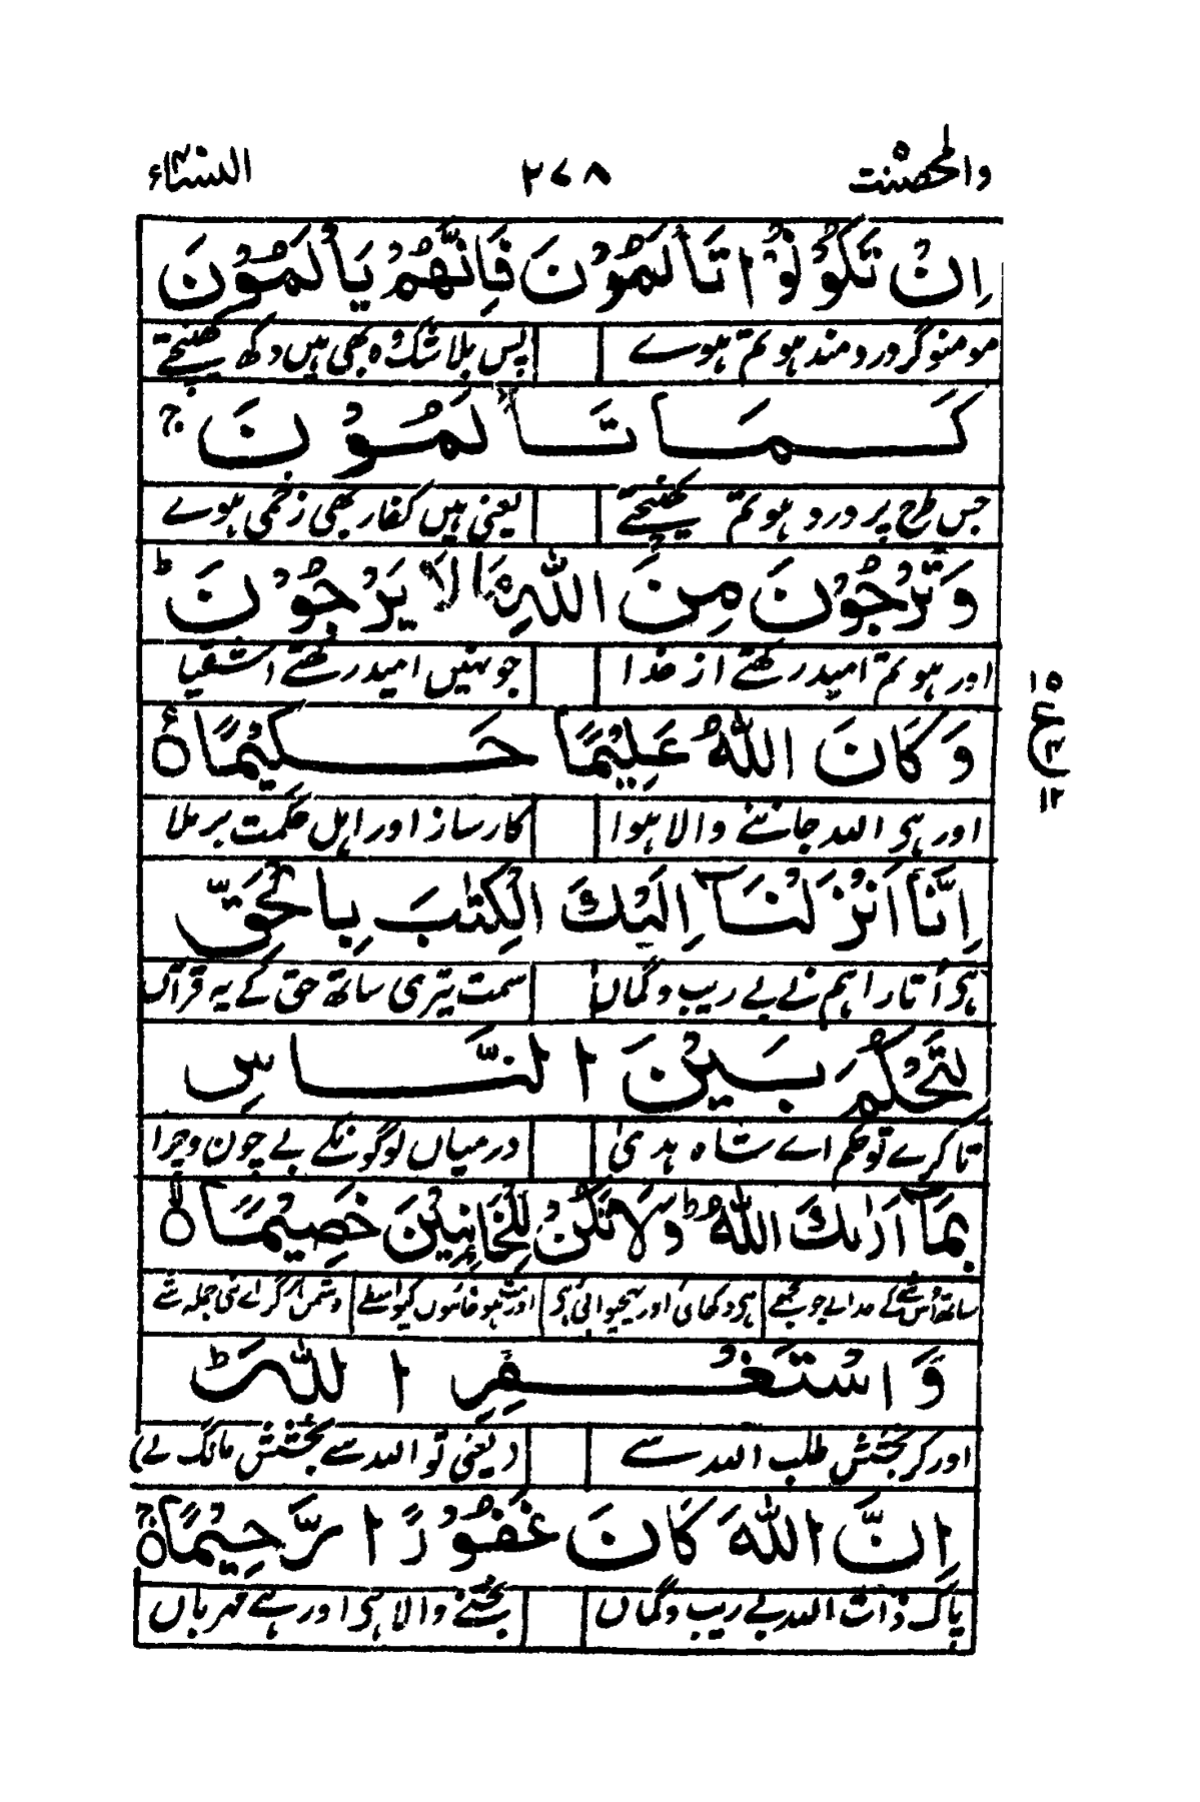 والمحصنت ٥ ٢٧٨ النساء ٤
اِنْ تَكُوْنُوْا تَاْلَمُوْنَ فَاِنَّهُمْ يَاْلَمُوْنَ
مومنو گر درد مند ہو تم ہوے پس بلا شک وہ بھی ہیں دکھ کھینچتے
كَمَا تَاْلَمُوْنَ ۚ
جس طرح پر درد ہو تم کھینچتے یعنی ہیں کفار بھی زخمی ہوے
وَتَرْجُوْنَ مِنَ اللّٰهِ مَا لَا يَرْجُوْنَ ؕ
اور ہو تم امید رکھتے از خدا جو نہیں امید رکھتے اشقیا
وَكَانَ اللّٰهُ عَلِيْمًا حَكِيْمًا ۟
اور ہی اللہ جاننے والا ہوا کارساز اور اہل حکمت برملا
١٥
ع
١٢
اِنَّاۤ اَنْزَلْنَاۤ اِلَيْكَ الْكِتٰبَ بِالْحَقِّ
ہی اُتارا ہم نے بے ریب و گماں سمت تیری ساتھ حق کے یہ قرآں
لِتَحْكُمَ بَيْنَ النَّاسِ
تا کرے تو حکم اے شاہ ہدیٰ درمیاں لوگونکے بے چون و چرا
بِمَاۤ اَرٰىكَ اللّٰهُ ؕ وَلَا تَكُنْ لِّلْخَآئِنِيْنَ خَصِيْمًا ۙ
ساتھ اُس شے کے خدا نے جو تجھے ہی دکھائی اور پہچوائی ہی اور مت ہو خائنوں کیواسطے
وَّاسْتَغْفِرِ اللّٰهَ ؕ
اور کر بخشش طلب اللہ سے (یعنی تو اللہ سے بخشش مانگ لے)
اِنَّ اللّٰهَ كَانَ غَفُوْرًا رَّحِيْمًا ۚ
پاک ذات اللہ بے ریب و گماں بخشنے والا ہی اور ہے مہرباں